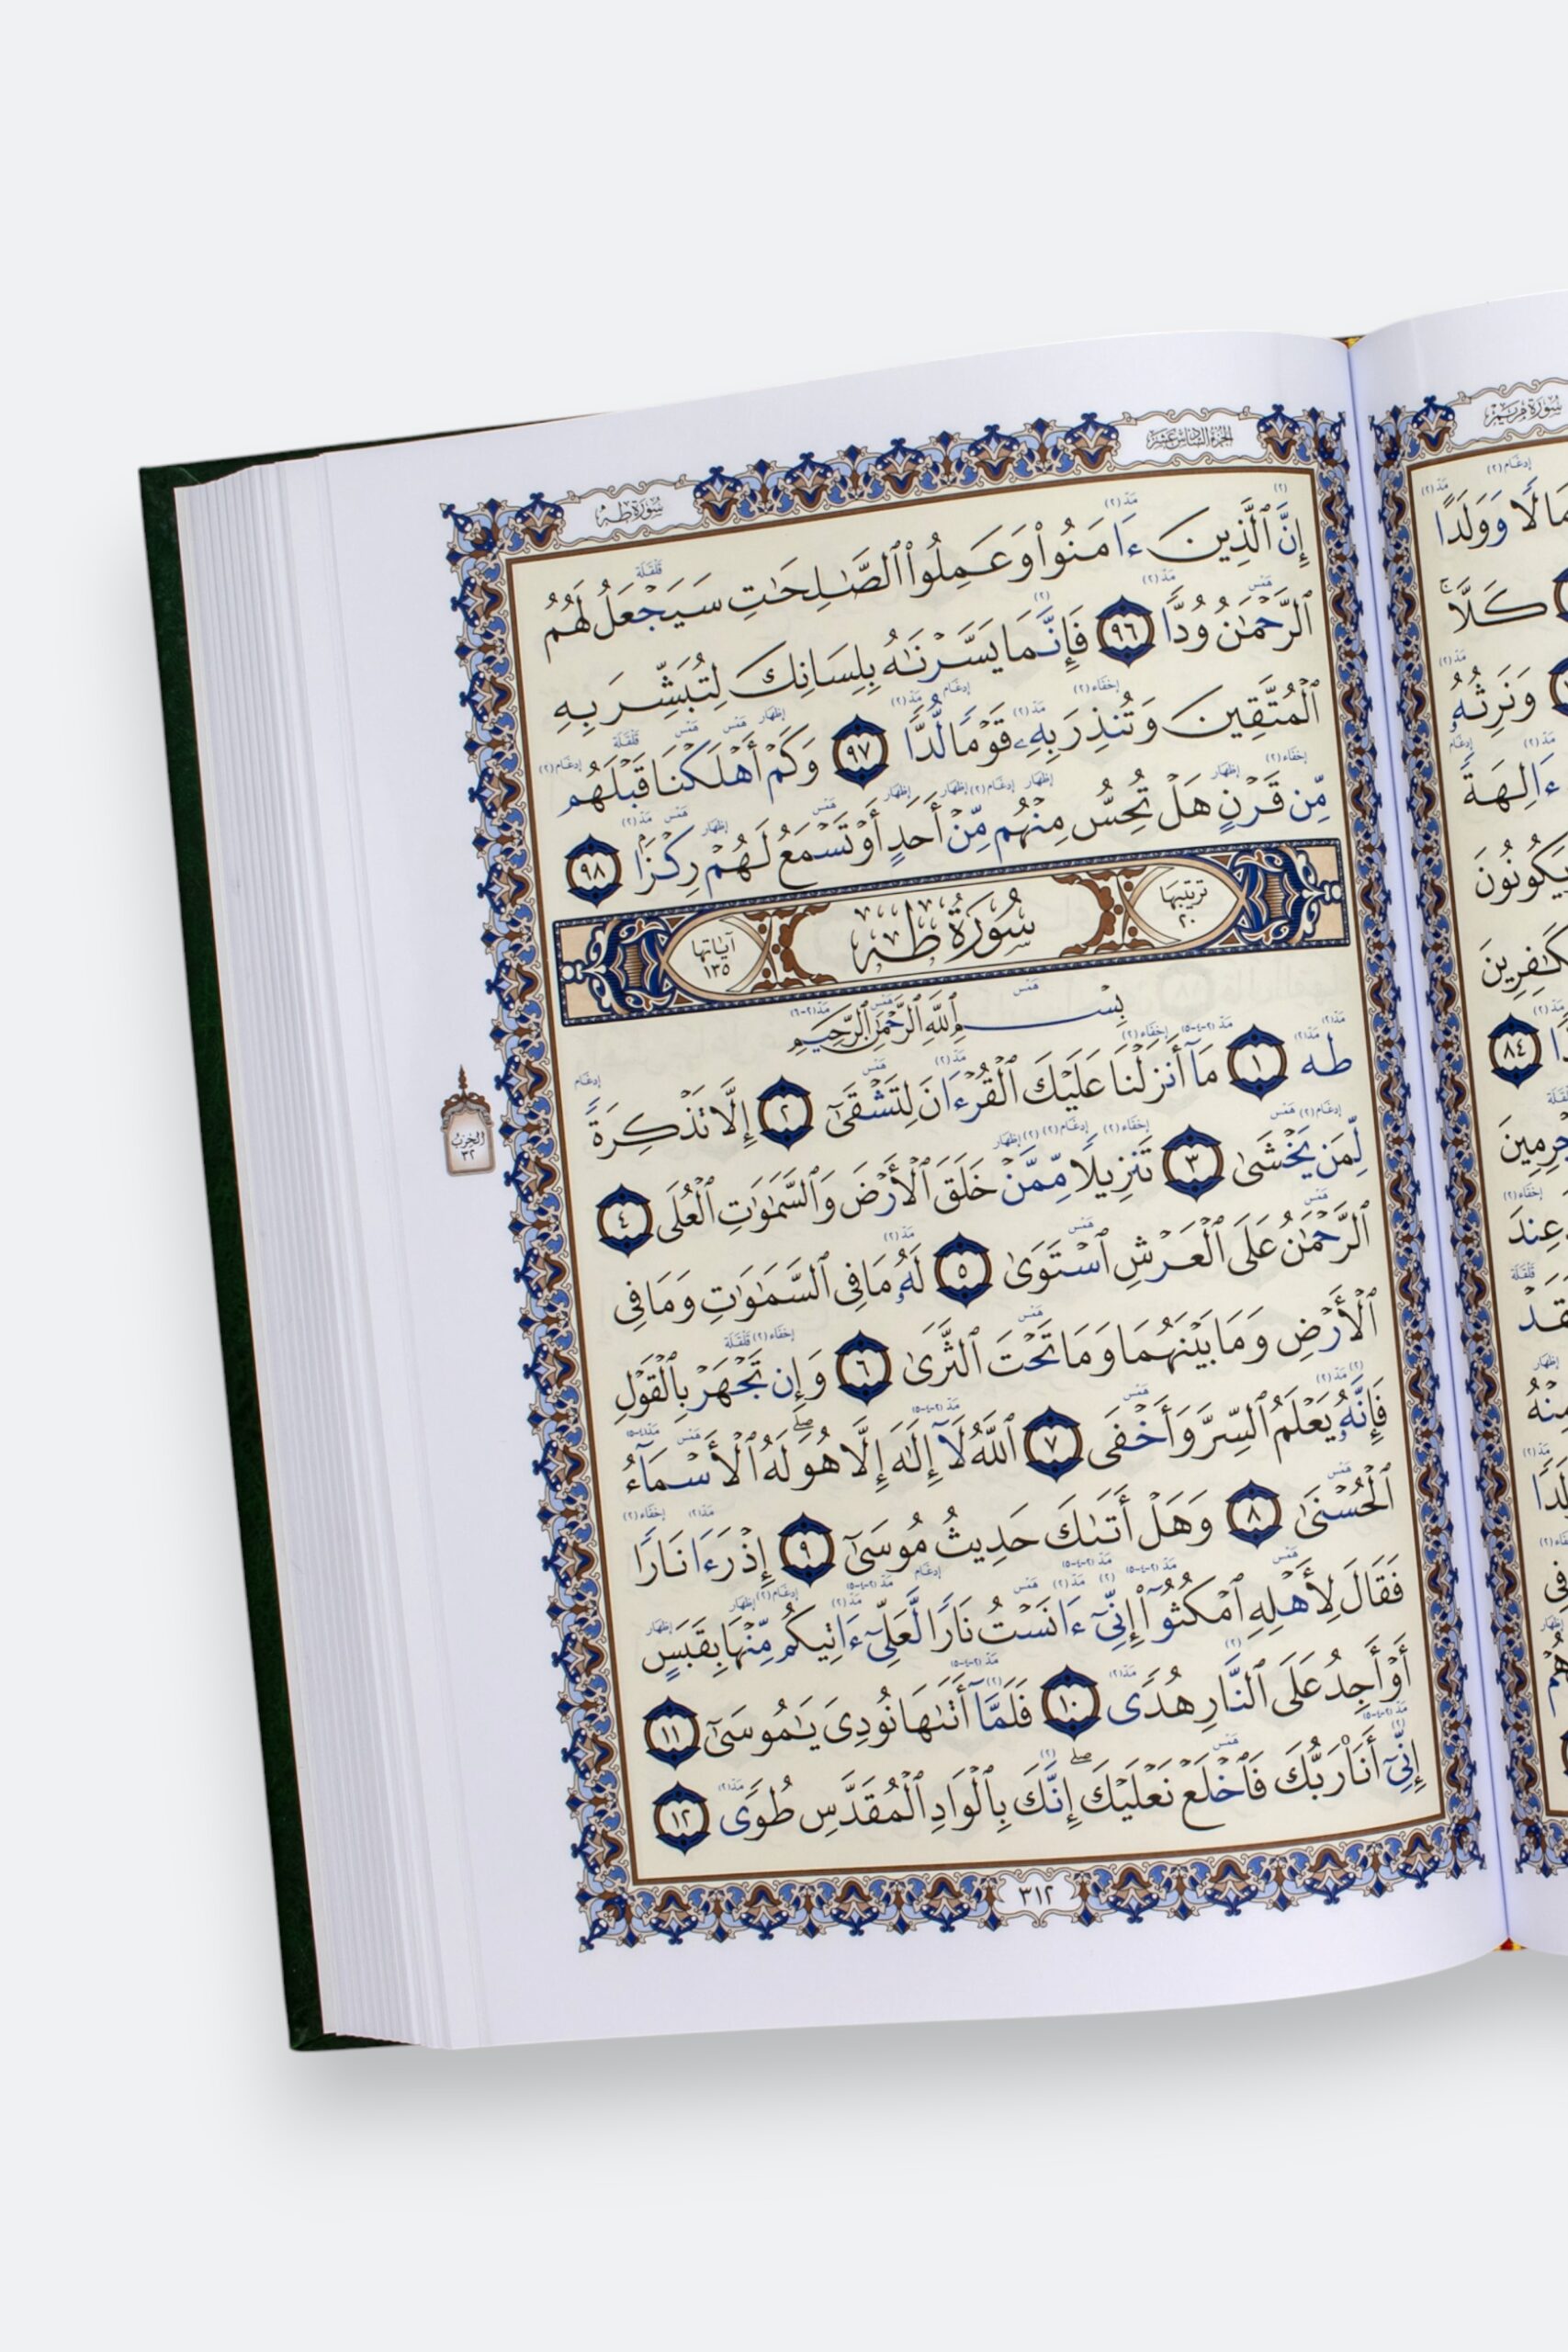 سُورَةُ طه
الجزء السادس عشر
إِنَّ ٱلَّذِينَ ءَامَنُوا۟ وَعَمِلُوا۟ ٱلصَّـٰلِحَـٰتِ سَيَجْعَلُ لَهُمُ
ٱلرَّحْمَـٰنُ وُدًّا ٩٦ فَإِنَّمَا يَسَّرْنَـٰهُ بِلِسَانِكَ لِتُبَشِّرَ بِهِ
ٱلْمُتَّقِينَ وَتُنذِرَ بِهِۦ قَوْمًا لُّدًّا ٩٧ وَكَمْ أَهْلَكْنَا قَبْلَهُم
مِّن قَرْنٍ هَلْ تُحِسُّ مِنْهُم مِّنْ أَحَدٍ أَوْ تَسْمَعُ لَهُمْ رِكْزًۢا ٩٨
ترتيبها ٢٠ سُورَةُ طه آياتها ١٣٥
بِسْمِ ٱللَّهِ ٱلرَّحْمَـٰنِ ٱلرَّحِيمِ
طه ١ مَآ أَنزَلْنَا عَلَيْكَ ٱلْقُرْءَانَ لِتَشْقَىٰٓ ٢ إِلَّا تَذْكِرَةً
لِّمَن يَخْشَىٰ ٣ تَنزِيلًا مِّمَّنْ خَلَقَ ٱلْأَرْضَ وَٱلسَّمَـٰوَٰتِ ٱلْعُلَى ٤
ٱلرَّحْمَـٰنُ عَلَى ٱلْعَرْشِ ٱسْتَوَىٰ ٥ لَهُۥ مَا فِى ٱلسَّمَـٰوَٰتِ وَمَا فِى
ٱلْأَرْضِ وَمَا بَيْنَهُمَا وَمَا تَحْتَ ٱلثَّرَىٰ ٦ وَإِن تَجْهَرْ بِٱلْقَوْلِ
فَإِنَّهُۥ يَعْلَمُ ٱلسِّرَّ وَأَخْفَى ٧ ٱللَّهُ لَآ إِلَـٰهَ إِلَّا هُوَ ۖ لَهُ ٱلْأَسْمَآءُ
ٱلْحُسْنَىٰ ٨ وَهَلْ أَتَىٰكَ حَدِيثُ مُوسَىٰٓ ٩ إِذْ رَءَا نَارًا
فَقَالَ لِأَهْلِهِ ٱمْكُثُوٓا۟ إِنِّىٓ ءَانَسْتُ نَارًا لَّعَلِّىٓ ءَاتِيكُم مِّنْهَا بِقَبَسٍ
أَوْ أَجِدُ عَلَى ٱلنَّارِ هُدًى ١٠ فَلَمَّآ أَتَىٰهَا نُودِىَ يَـٰمُوسَىٰٓ ١١
إِنِّىٓ أَنَا۠ رَبُّكَ فَٱخْلَعْ نَعْلَيْكَ ۖ إِنَّكَ بِٱلْوَادِ ٱلْمُقَدَّسِ طُوًى ١٢
٣١٢
الحزب
٣٢
سورة مريم
مَالًا وَوَلَدًا
كَلَّا ۚ
وَنَرِثُهُۥ
ءَالِهَةً
يَكُونُونَ
٨٤
عِندَ